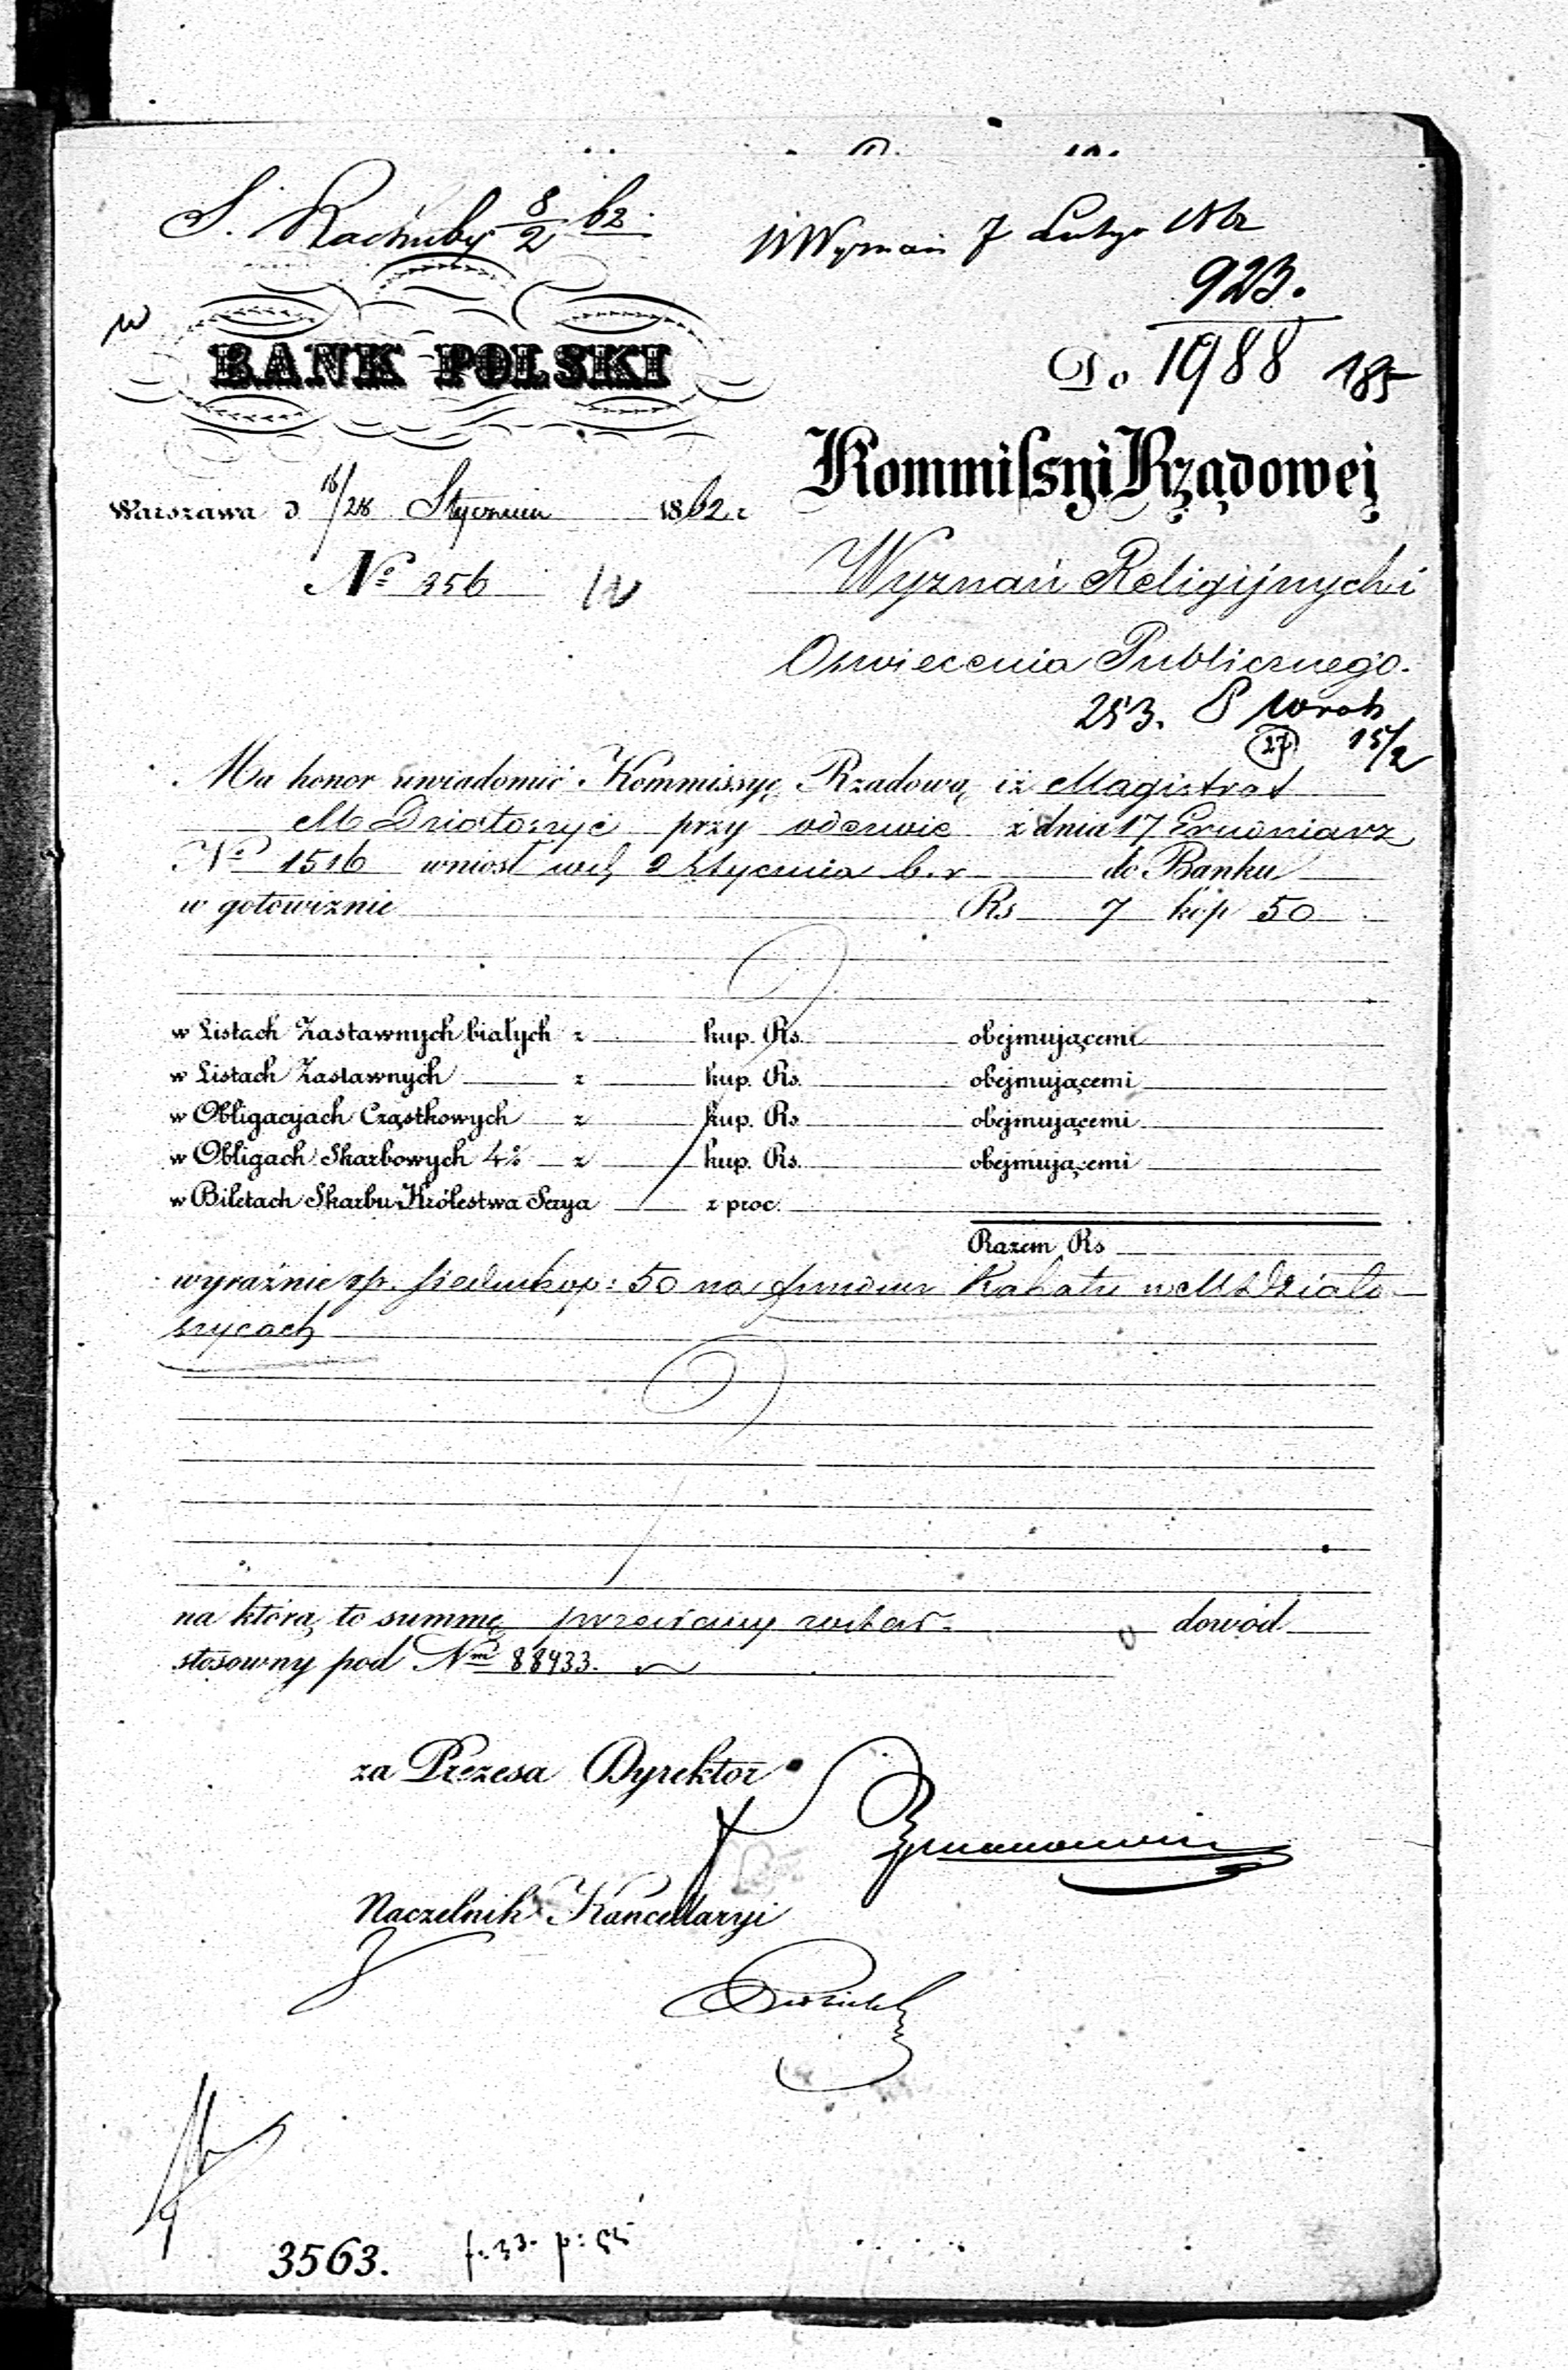 S. Rachuby 8/2 62.
W Wyznań 7 Lutego 1862
923.
BANK POLSKI
Do 1988 185
Kommissyi Rządowej
Warszawa d 16/28 Stycznia 1862 r
No 356
Wyznań Religijnych i
Oswiecenia Publicznego.
253.
27 15/2
Ma honor uwiadomić Kommissyę Rządową iż Magistrat
M Działoszyc przy odezwie z dnia 17 Grudnia rz
No 1516 wniosł wd 2 Stycznia b. r do Banku
w gotowiznie Rs 7 kóp 50
w Listach Zastawnych białych z kup. Rs. obejmującemi
w Listach Zastawnych z kup. Rs. obejmującemi
w Obligacyjach Cząstkowych z kup. Rs. obejmującemi
w Obligach Skarbowych 4% z kup. Rs. obejmującemi
w Biletach Skarbu Królestwa Serya z proc.
Razem Rs
wyraźnie rsr. siedm kop: 50 na fundusz Kahału w M Działo-
szycach
na którą to summę dowód
stosowny pod Nm 88933.
za Prezesa Dyrektor
Naczelnik Kancellaryi
3563. f. 33. p: 55